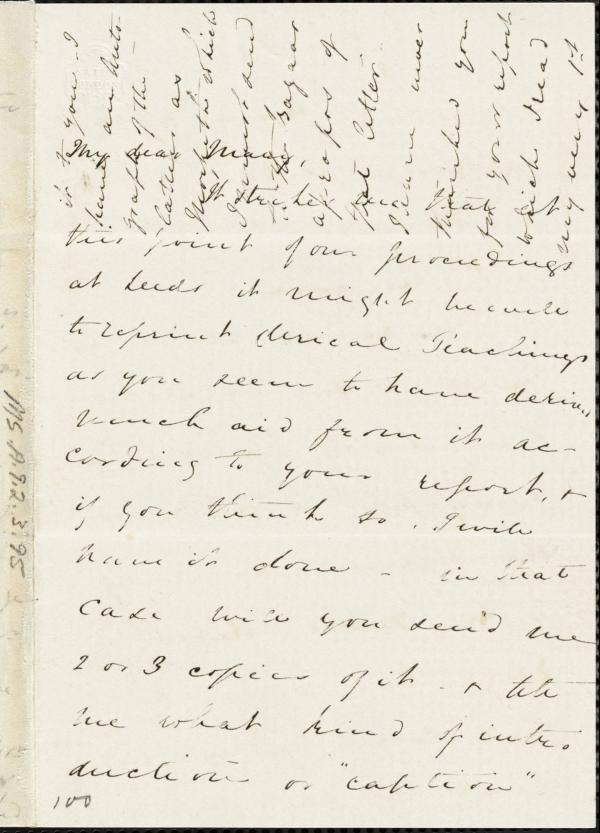 My dear Mary,
It strikes me that at
this point of our proceedings
at Leeds it might be well
to reprint Clerical Teachings
as you seem to have derived
much aid from it ac-
cording to your report, &
if you think so, I will
have it done - in that
case will you send me
2 or 3 copies of it - & tell
me what kind of intro
duction or "caption"
100
to you - I
have an auto
graph of the
letter as
which
I send
to the Bazaar
apropos of
that letter.
I have never
thanked you
for your report
which I read
my very 1st
MS.A.9.2.3.95